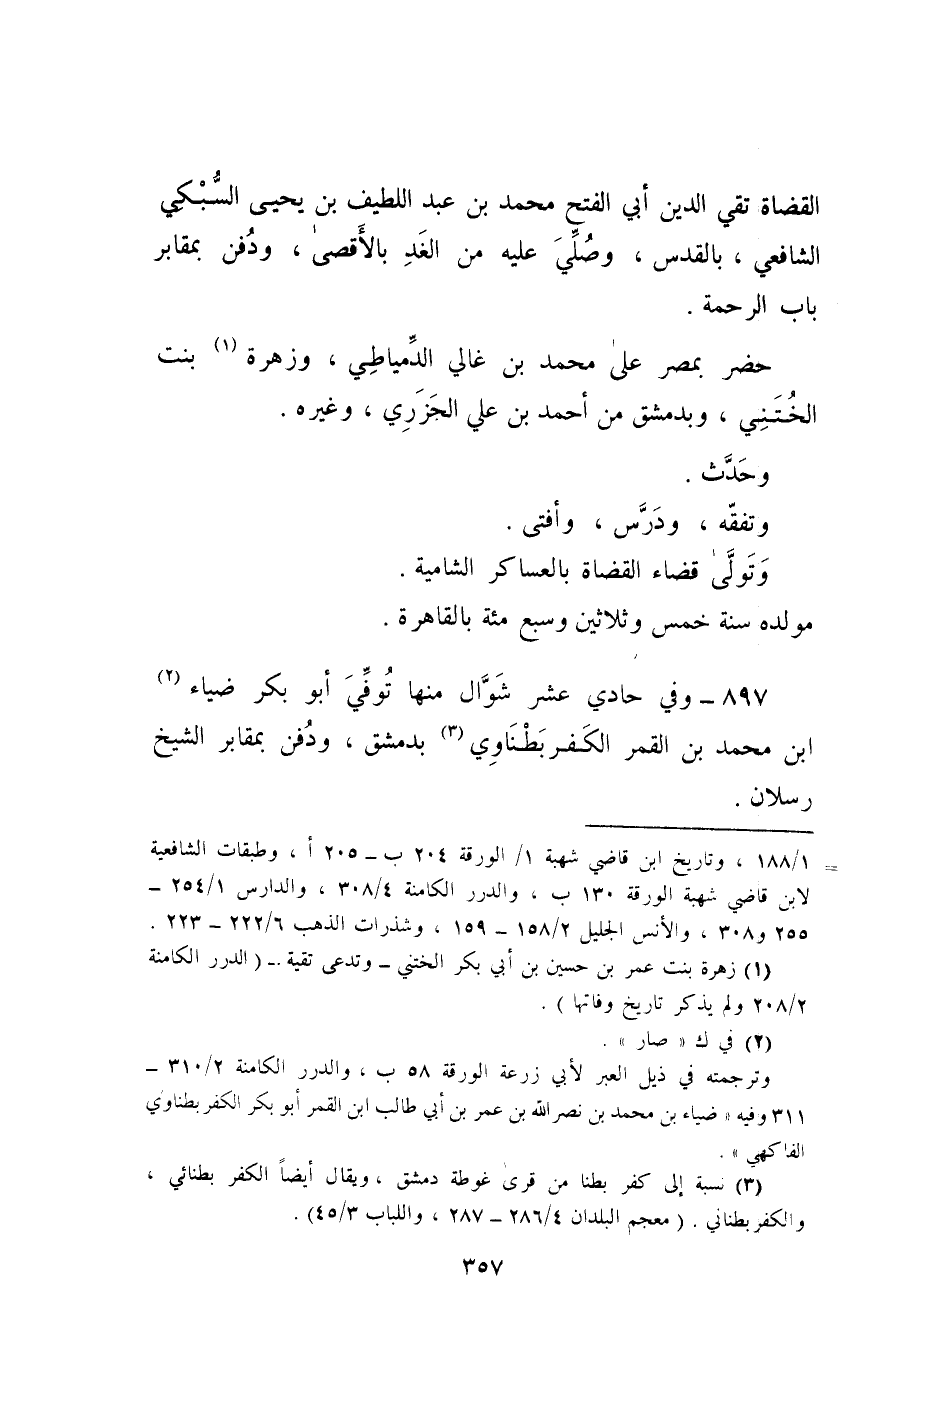 القضاة تقي الدين أبي الفتح محمد بن عبد اللطيف بن يحيى السُّبْكِي
الشافعي ، بالقدس ، وصُلِّيَ عليه من الغَدِ بالأَقصىٰ ، ودُفن بمقابر
باب الرحمة .
حضر بمصر علىٰ محمد بن غالي الدِّمياطِي ، وزهرة (١) بنت
الخُتَنِي ، وبدمشق من أحمد بن علي الجَزَري ، وغيره .
وحَدَّث .
وتفقّه ، ودَرَّس ، وأفتى .
وَتَولَّىٰ قضاء القضاة بالعساكر الشامية .
مولده سنة خمس وثلاثين وسبع مئة بالقاهرة .
٨٩٧ ـ وفي حادي عشر شَوَّال منها تُوفِّيَ أبو بكر ضياء (٢)
ابن محمد بن القمر الكَفربَطْنَاوِي (٣) بدمشق ، ودُفن بمقابر الشيخ
رسلان .
= ١٨٨/١ ، وتاريخ ابن قاضي شهبة ١/ الورقة ٢٠٤ ب ـ ٢٠٥ أ ، وطبقات الشافعية
لابن قاضي شهبة الورقة ١٣٠ ب ، والدرر الكامنة ٣٠٨/٤ ، والدارس ٢٥٤/١ ـ
٢٥٥ و٣٠٨ ، والأنس الجليل ١٥٨/٢ ـ ١٥٩ ، وشذرات الذهب ٢٢٢/٦ ـ ٢٢٣ .
(١) زهرة بنت عمر بن حسين بن أبي بكر الختني ـ وتدعى تقية ـ ( الدرر الكامنة
٢٠٨/٢ ولم يذكر تاريخ وفاتها ) .
(٢) في ك « صار » .
وترجمته في ذيل العبر لأبي زرعة الورقة ٥٨ ب ، والدرر الكامنة ٣١٠/٢ ـ
٣١١ وفيه « ضياء بن محمد بن نصر الله بن عمر بن أبي طالب ابن القمر أبو بكر الكفر بطناوي
الفاكهي » .
(٣) نسبة إلى كفر بطنا من قرىٰ غوطة دمشق ، ويقال أيضاً الكفر بطنائي ،
والكفر بطناني . ( معجم البلدان ٢٨٦/٤ ـ ٢٨٧ ، واللباب ٤٥/٣) .
٣٥٧